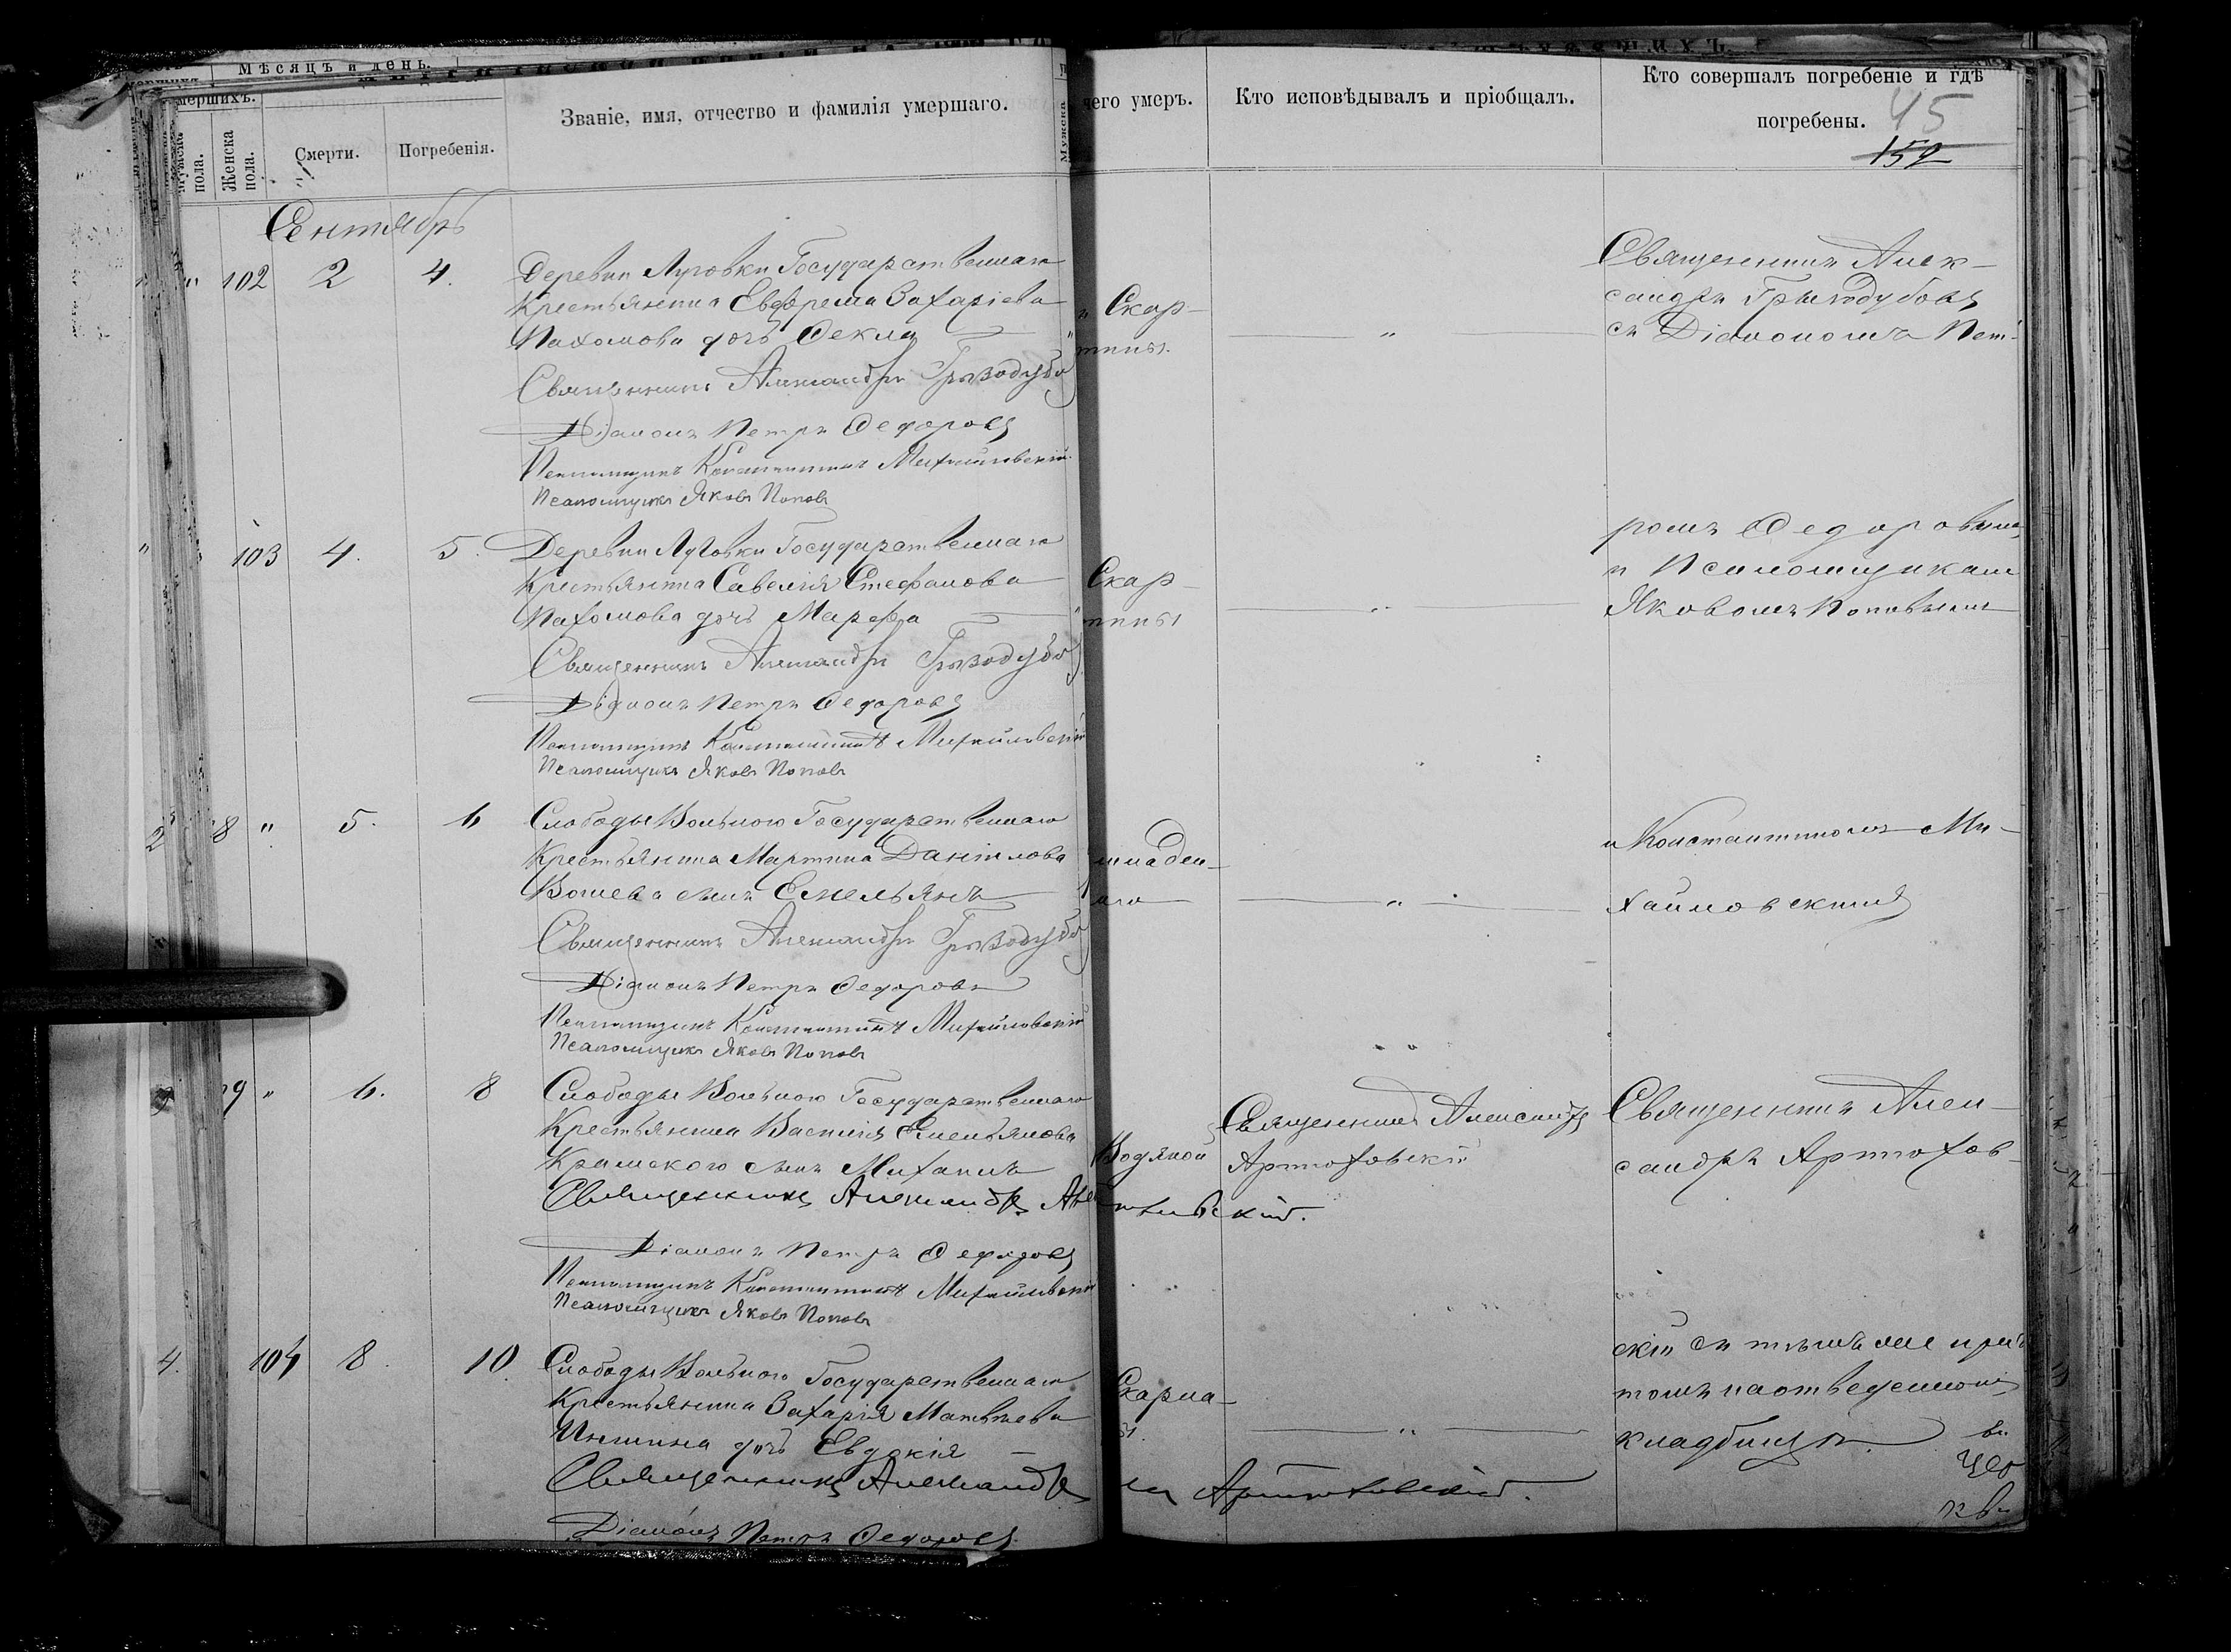 Мѣсяцъ и день.
мершихъ.
Званіе, имя, отчество и фамилія умершаго.
чего умеръ.
Кто исповѣдывалъ и пріобщалъ.
Кто совершалъ погребеніе и гдѣ
погребены.
45
152
Мужска
пола.
Женска
пола.
Смерти.
Погребенія.
Сентябрь
" 102 2 4. Деревни Луговки Государственнаго
Крестьянина Евфрема Захаріева
Пахомова дочь Фекла
Скар-
тины.
"
Священникъ Алек-
сандръ Грызодубовъ
съ Діакономъ Пет-
Священникъ Александръ Грызодубо
Діаконъ Петръ Федоровъ
Псаломщикъ Константинъ Михайловскій
Псаломщикъ Яковъ Поповъ
" 103 4. 5. Деревни Луговки Государственнаго
Крестьянина Савелія Стефанова
Пахомова дочь Марфа
Скар-
тины
"
ромъ Федоровымъ
и Псаломщикам
Яковомъ Поповымъ
Священникъ Александръ Грызодубо
Діаконъ Петръ Федоровъ
Псаломщикъ Константинъ Михайловскій
Псаломщикъ Яковъ Поповъ
2 8 " 5. 6 Слободы Вольного Государственнаго
Крестьянина Мартина Даніилова
сынъ Емельянъ
младен-
"
и Константиномъ Ми-
хайловскимъ
Священникъ Александръ Грызодубо
Діаконъ Петръ Федоровъ
Псаломщикъ Константинъ Михайловскій
Псаломщикъ Яковъ Поповъ
9 " 6. 8 Слободы Вольного Государственнаго
Крестьянина Василія Емельянова
Крамского сынъ Михаилъ
Водяной
Священникъ Александръ
Артюховскій
Священникъ Алек-
сандръ Артюхов-
Священникъ Александръ Артюховскій.
Діаконъ Петръ Федоровъ
Псаломщикъ Константинъ Михайловскій
Псаломщикъ Яковъ Поповъ
4. 104 8. 10. Слободы Вольного Государственнаго
Крестьянина Захарія Матвѣева
дочь Евдокія
"
скій съ тѣмъ же прич
томъ на отведенномъ
кладбищѣ.
Священникъ Александръ Артюховскій.
Діаконъ Петръ Федоровъ